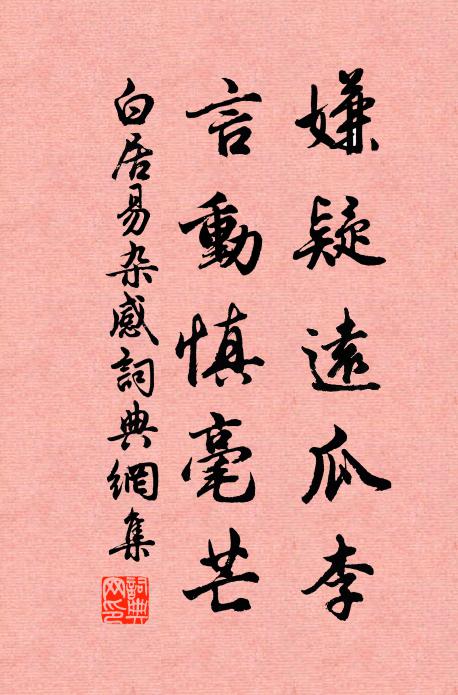 嫌疑遠瓜李
言動慎毫芒
白居易杂感詞典網集
詞典网印